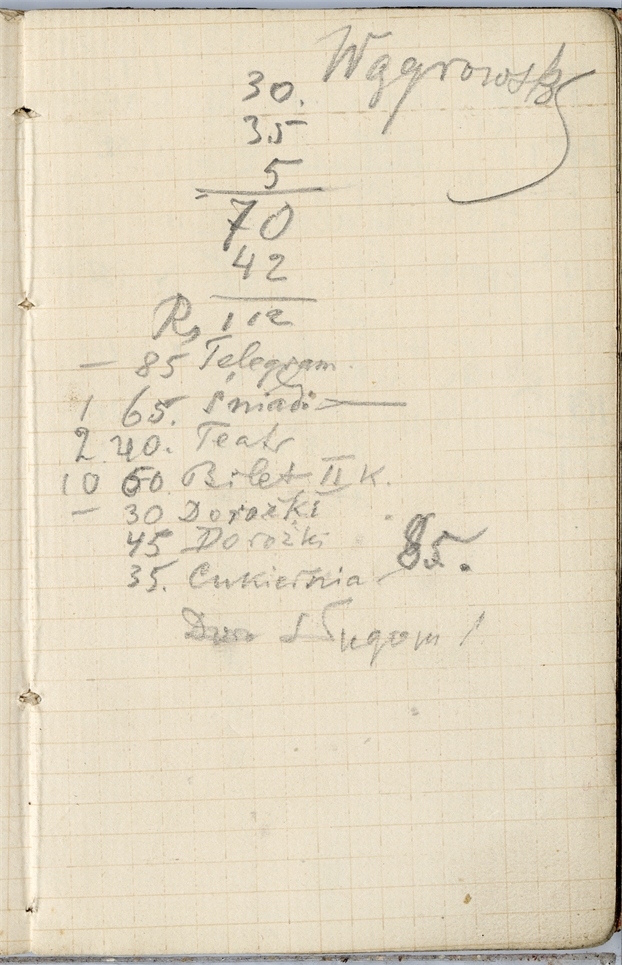 Wągrowski
30.
35
5
70
42
Rs 112
— 85 Telegram.
1 65. Śniad
2 40. Teatr
10 60 Bilet II K.
— 30 Dorożki
45 Dorożki 85.
35. Cukiernia
Sługom 1